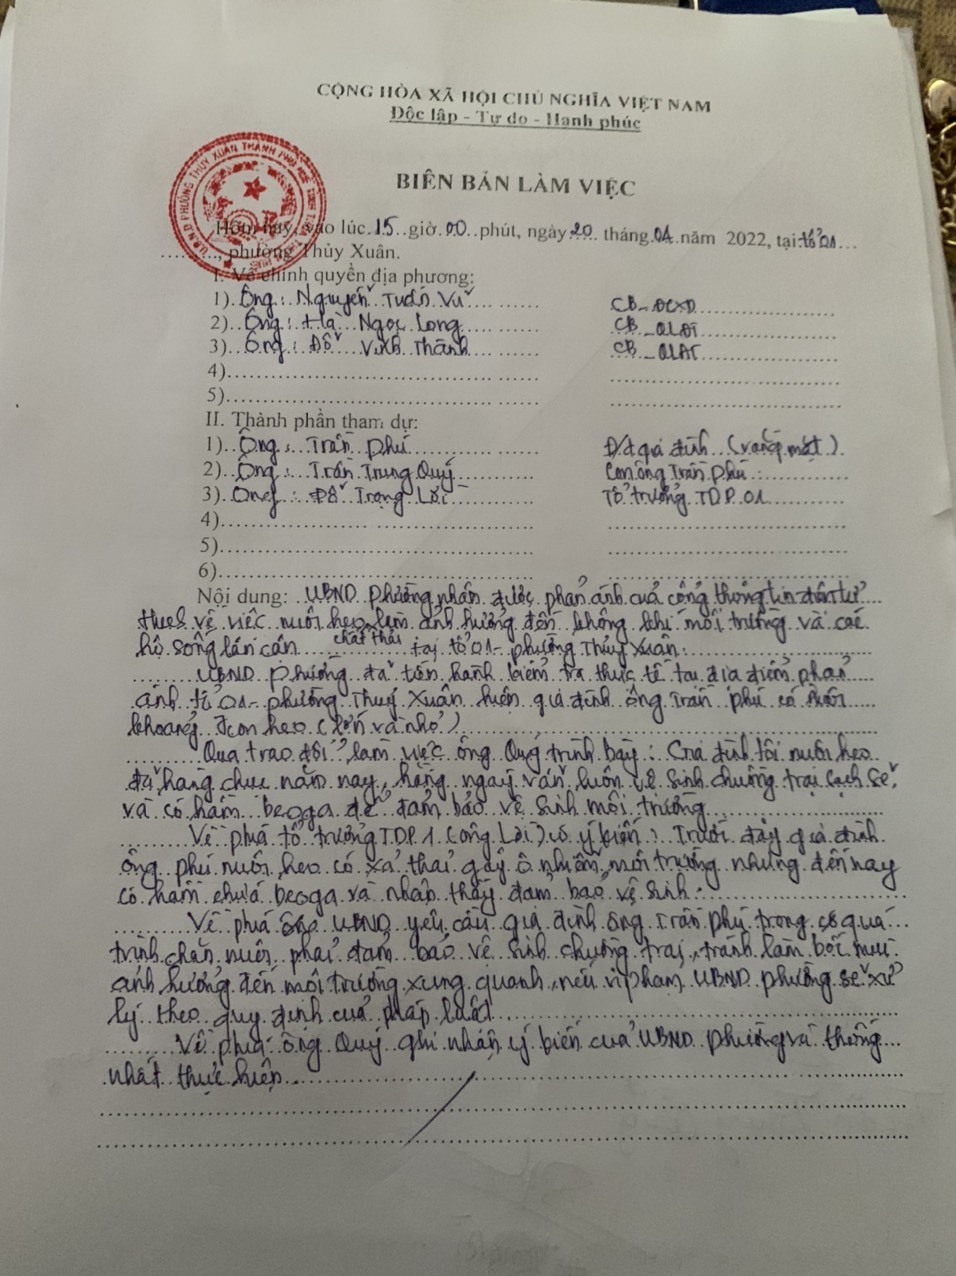 CỘNG HÒA XÃ HỘI CHỦ NGHĨA VIỆT NAM
Độc lập - Tự do - Hạnh phúc
BIÊN BẢN LÀM VIỆC
Hôm nay, vào lúc 15 giờ 00 phút, ngày 20 tháng 01 năm 2022, tại tổ 01
, phường Thủy Xuân.
I. Về chính quyền địa phương:
1). Ông: Nguyễn Tuấn Vũ CB_ĐCXD
2). Ông: Hà Ngọc Long CB_QLĐT
3). Ông: Đỗ Vĩnh Thành
4)
5)
II. Thành phần tham dự:
1). Ông: Trần Phú Đ/d gia đình (vắng mặt).
2). Ông: Trần Trung Quý Con ông Trần Phú
3). Ông: Đỗ Trọng Lời Tổ trưởng TDP. 01
4)
5)
6)
Nội dung: UBND phường nhận được phản ánh của cổng thông tin điện tử
Huế về việc nuôi heo làm ảnh hưởng đến không khí môi trường và các
chất thải
hộ sống lân cận tại tổ 01 - phường Thủy Xuân
UBND phường đã tiến hành kiểm tra thực tế tại địa điểm phản
ánh tổ 01 - phường Thuỷ Xuân hiện gia đình ông Trần Phú có nuôi
khoảng con heo (lớn và nhỏ)
Qua trao đổi, làm việc ông Quý trình bày: Gia đình tôi nuôi heo
đã hàng chục năm nay, hằng ngày vẫn luôn vệ sinh chuồng trại sạch sẽ
và có hầm beoga để đảm bảo vệ sinh môi trường
Về phía tổ trưởng TDP. 1 (ông Lời) có ý kiến: Trước đây gia đình
ông Phú nuôi heo có xả thải gây ô nhiễm môi trường nhưng đến nay
có hầm chứa beoga và nhận thấy đảm bảo vệ sinh.
Về phía UBND yêu cầu gia đình ông Trần Phú trong quá
trình chăn nuôi phải đảm bảo vệ sinh chuồng trại, tránh làm bốc mùi
ảnh hưởng đến môi trường xung quanh, nếu vi phạm UBND phường sẽ xử
lý theo quy định của pháp luật
Về phía ông Quý ghi nhận ý kiến của UBND phường và thống
nhất thực hiện